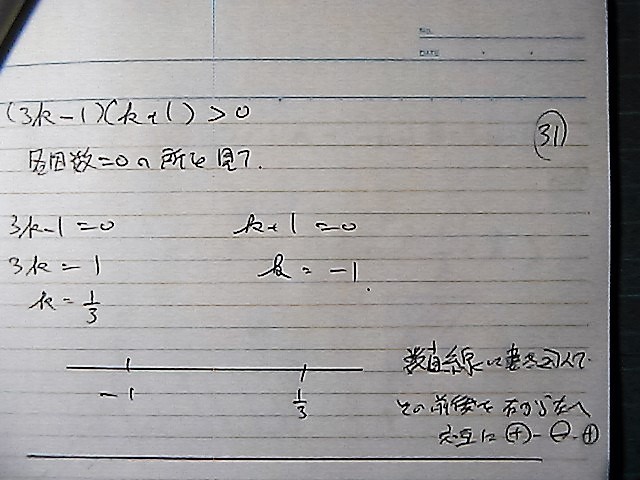 NO.
DATE
(3k-1)(k+1)>0
31
各因数=0の所を見て.
3k-1=0 k+1=0
3k=1 k=-1.
k=1/3
-1 1/3
数直線に書き込んで
その前後を右から左へ
交互に⊕-⊖-⊕